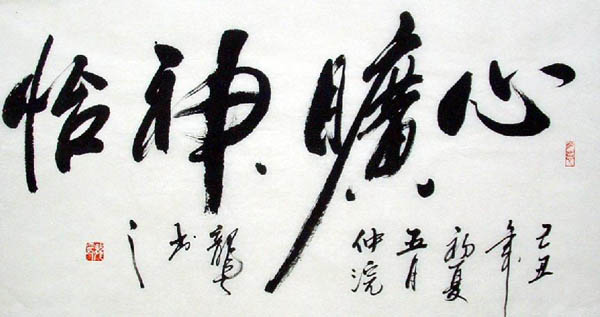 心曠神怡
己丑
年
初夏
五月
仲浣
龍
书
之